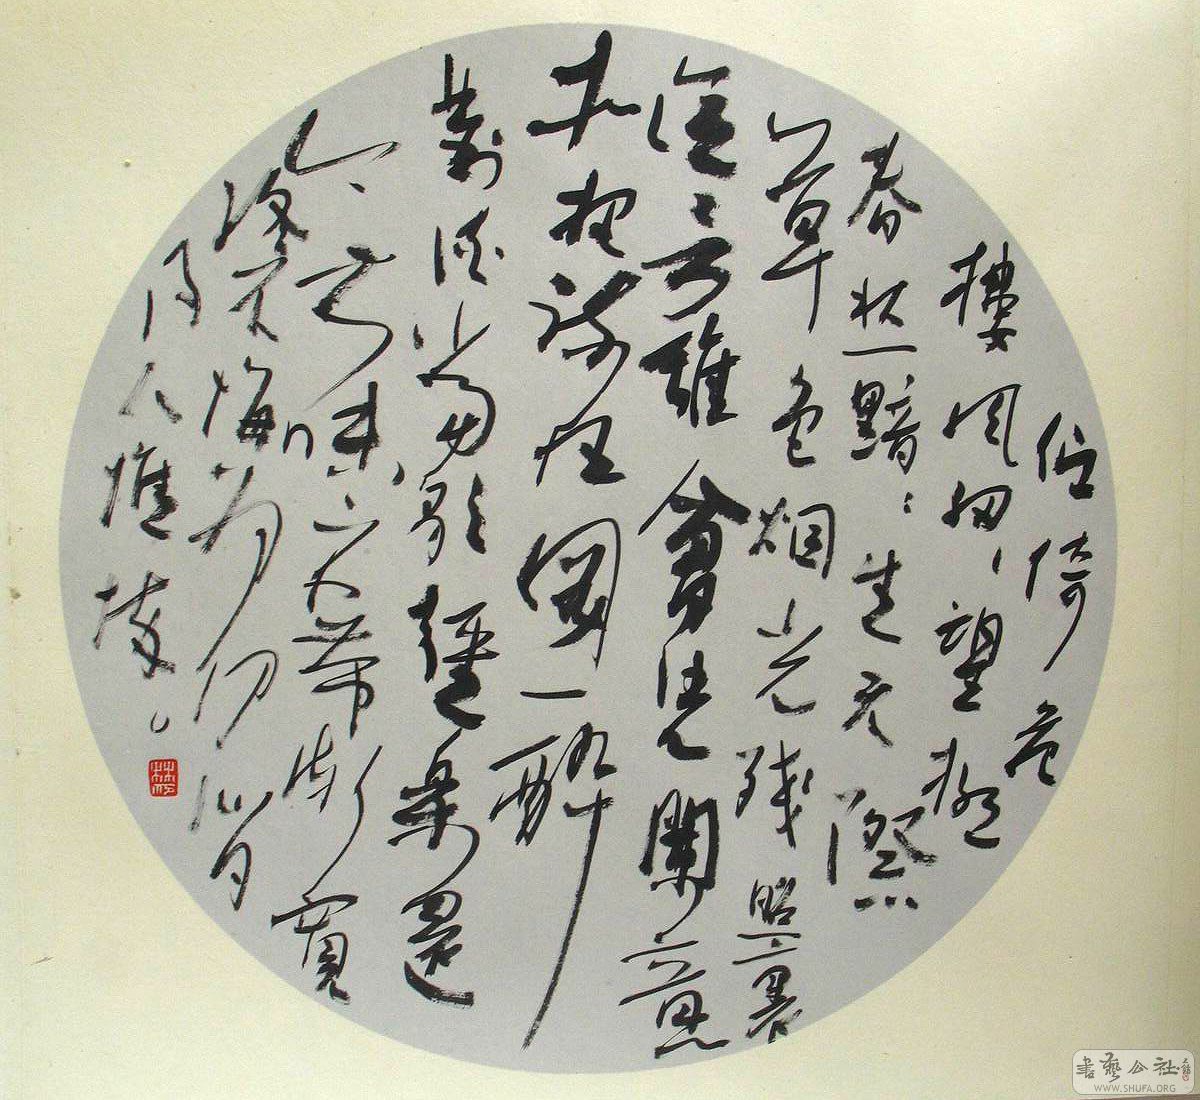 佇倚危
樓風細〻望極
春愁黯〻生天際
草色烟光殘照裏
言誰會憑闌意
疏狂圖一醉
對酒當歌強樂還
無味衣帶漸寬
終不悔為伊消
得人憔悴
書藝公社
WWW.SHUFA.ORG